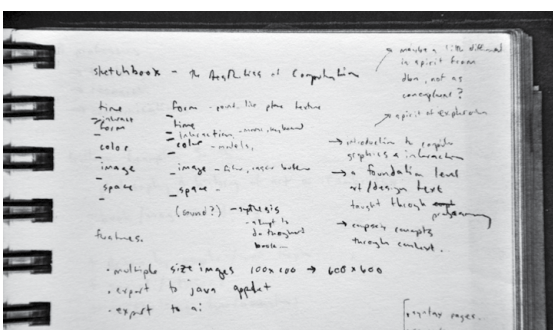 sketchbook - The Aesthetics of Computation
maybe a little different
in spirit from
dbn, not as
conceptual?
spirit of exploration
time
interact
form
color
image
space
form - point, line plane texture
time
interaction, mouse, keyboard
color - models,
image - filter,
space -
(sound?) - synthesis
- attempt to
do throughout
book
introduction to computer
graphics & interaction
a foundation level
art/design text
taught through
programming
concepts
through content.
features.
- multiple size images 100x100 → 600x600
- export to java applet
- export to ai
pages..